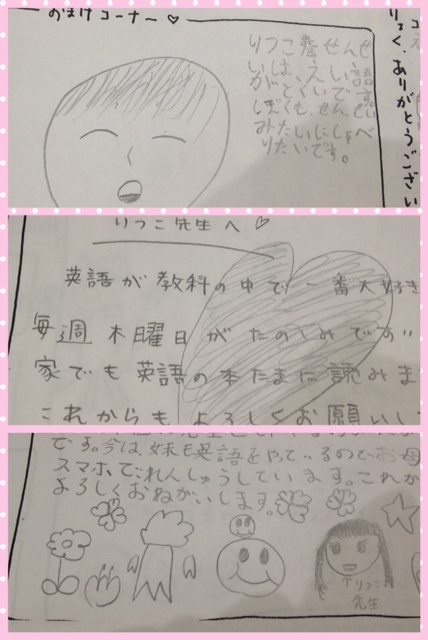 おまけコーナー♡
りつこ先生せんせ
いは、えい語
がとくいです。
ぼくも、せんせい
みたいにしゃべ
りたいです。
りょく、ありがとうござい
りつこ先生へ♡
英語が教科の中で一番大好き
毎週木曜日がたのしみです
家でも英語の本たまに読みま
これからもよろしくお願いし
です。今は妹も英語をやっているのでお母
スマホでれんしゅうしています。これか
よろしくおねがいします。
りつこ
先生